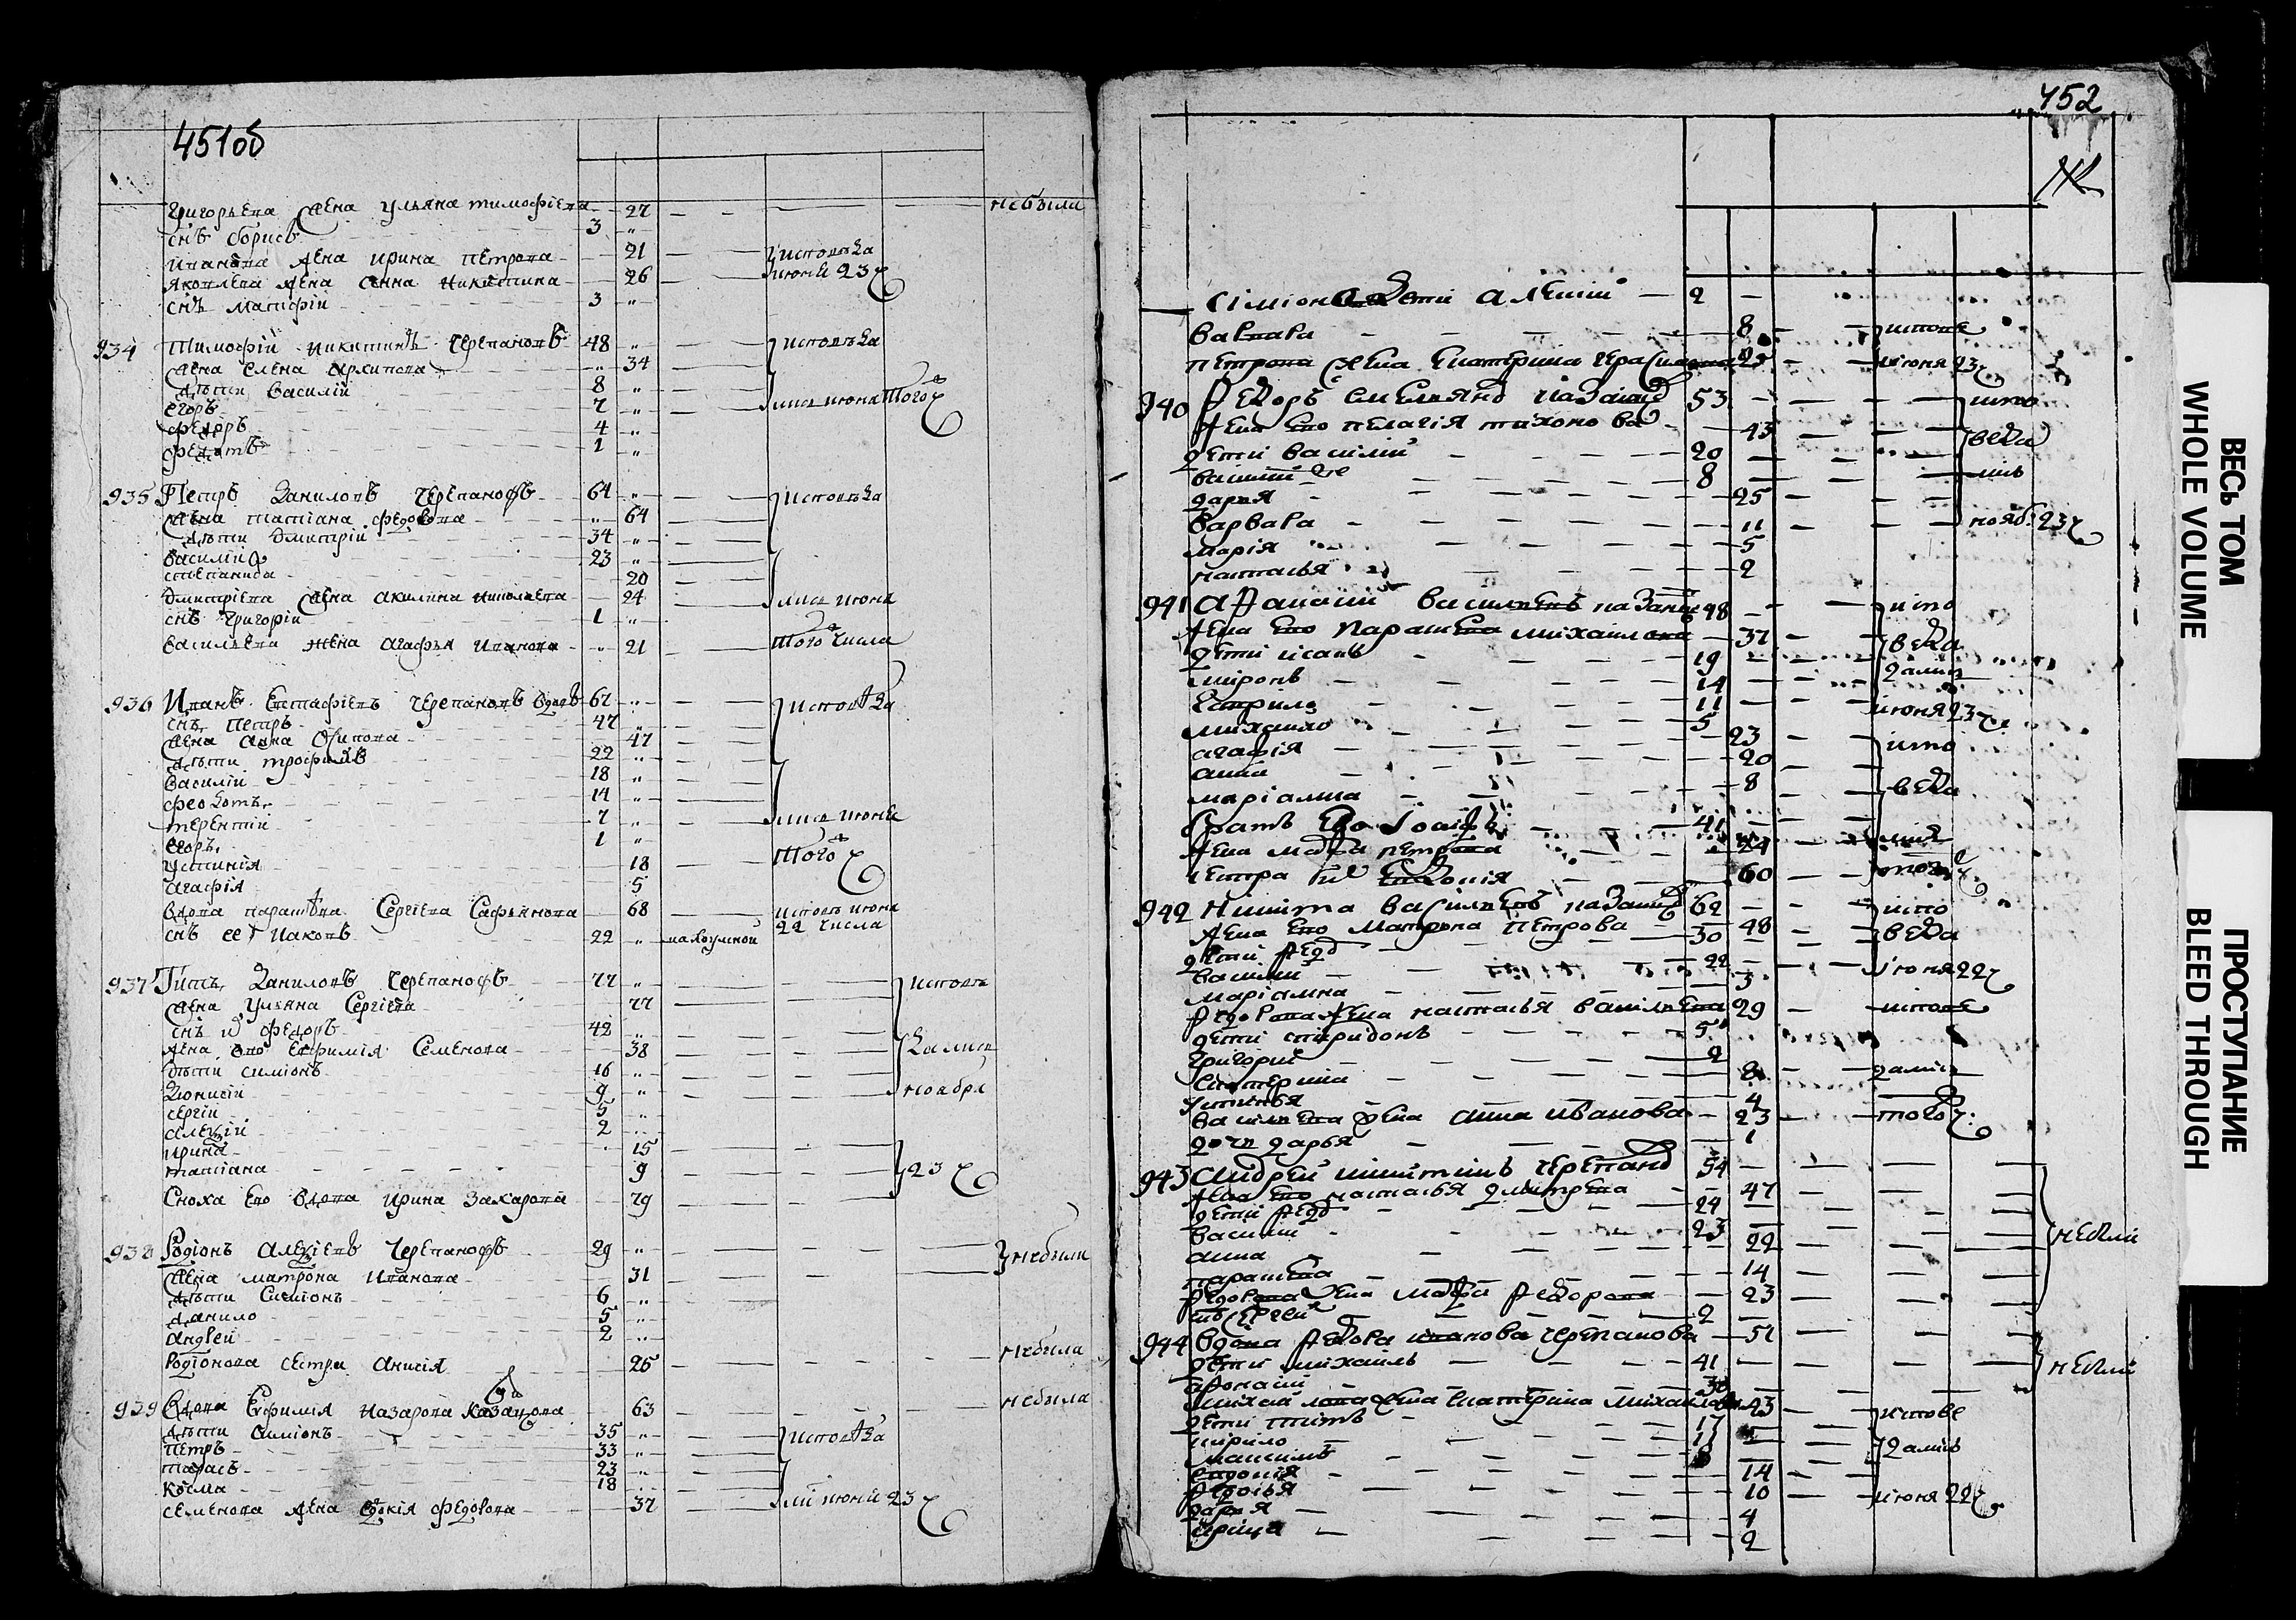 451об
Григорьева жена Ульяна Тимофіева 27 небыли
снъ Борисъ 3
Иванова жена Ирина Петрова 21 исповѣда
Яковлева жена Анна Никитина 26 июня 23 ч
снъ Матфій 3
934 Тимофій Никитинъ Черепановъ 48 исповѣда
жена Елена Архипова 34
дѣти Василій 8
Егоръ 7 лись июня того ч
Федоръ 4
Федотъ 1
935 Петръ Даниловъ Черепанофъ 64 исповѣда
жена Татіана Федорова 64
дѣти Дмитрій 34
Василий 23
Степанида 20
Дмитріева жена Акилина Николаева 24 лись июня
снъ Григорій 1
Васильева жена Агафья Иванова 21 того числа
936 Иванъ Евстафіевъ Черепановъ вдовъ 67 исповѣда
снъ Петръ 47
жена Анна Осипова 47
дѣти Трофимъ 22
Василій 18
Феодотъ 14
Терентій 7 лись июня
Егоръ 1
Устинія 18 того ч
Агафія 5
вдова Парасковья Сергіева Сафьянова 68 исповѣ июня
снъ ее Иаковъ 22 малоумной 22 числа
937 Титъ Даниловъ Черепанофъ 77 исповѣ
жена Ульяна Сергіева 77
снъ Федоръ 42
жена ево Евфимія Семенова 38 дались
дѣти Симіонъ 16
Діонисій 9 ноября
Сергіи 5
Алексій 2
Ирина 15
Татіана 9 23 ч
Сноха ево вдова Ирина Захарова 79
938 Родіонъ Алексіевъ Черепанофъ 29 небыли
жена Матрона Иванова 31
дѣти Симіонъ 6
Данило 5
Андрей 2
Родіонова сестра Анисія 25 небыла
939 Вдова Евфимія Назарова Казанцова 63 небыла
дѣти Симіонъ 35 исповѣда
Петръ 33
Тарасъ 23
Косма 18
Семенова жена Евдокія Федорова 37 лись июня 23 ч
452
Симіона дети Алексій 2
Варвара 8 исповѣ
Петрова жена Екатерина Герасимова 25 июня 23 ч
940 Федоръ Емельяновъ Казанц 53 испо
жена ево Пелагія Тихонова 43 веда
дети Василій 20
Василій 2е 8 лись
Дарья 25
Варвара 11 нояб: 23 ч
Марія 5
Наталья 2
941 Афанасій Васильевъ Казанц 48 испо
жена ево Парасковья Михаилова 37 веда
дети Исакъ 19 дались
Миронъ 14
Гаврило 11 июня 23 ч
Михаило 5
Агафія 23 испо
Анна 20
Маріамна 8 веда
братъ ево Іосифъ 41
жена Марфа Петрова 29 лися
сестра Евдокія 60 того ч
942 Никита Васильевъ Казанц 62 испо
жена ево Матрена Петрова 48 веда
дети Федоръ 30
Василій 22 июня 22 ч
Маріамна 3
Федорова жена Наталья Васильева 29 исповѣ
дети Спиридонъ 5
Григорий 2
Екатерина 8 дались
Устинья 4
Васильева жена Анна Иванова 23 того ч:
дочь Дарья 1
943 Андрей Никитинъ Черепановъ 54
жена ево Наталья Дмитриева 47
дети Федоръ 24
Василий 23 небыли
Анна 22
Парасковья 14
Федорова жена Марфа Федорова 23
снъ Сергеи 2
944 Вдова Федора Иванова Черепанова 57
дети Михаилъ 41 небыли
Афонасій 30
Михаилова жена Екатерина Михаилова 43 исповѣ
дети Титъ 17
Кирило 11 дались
Максимъ
Евдокія 14
Федосья 10 июня 22 ч
Дарья 4
Ирина 2
ВЕСЬ ТОМ
WHOLE VOLUME
ПРОСТУПАНИЕ
BLEED THROUGH